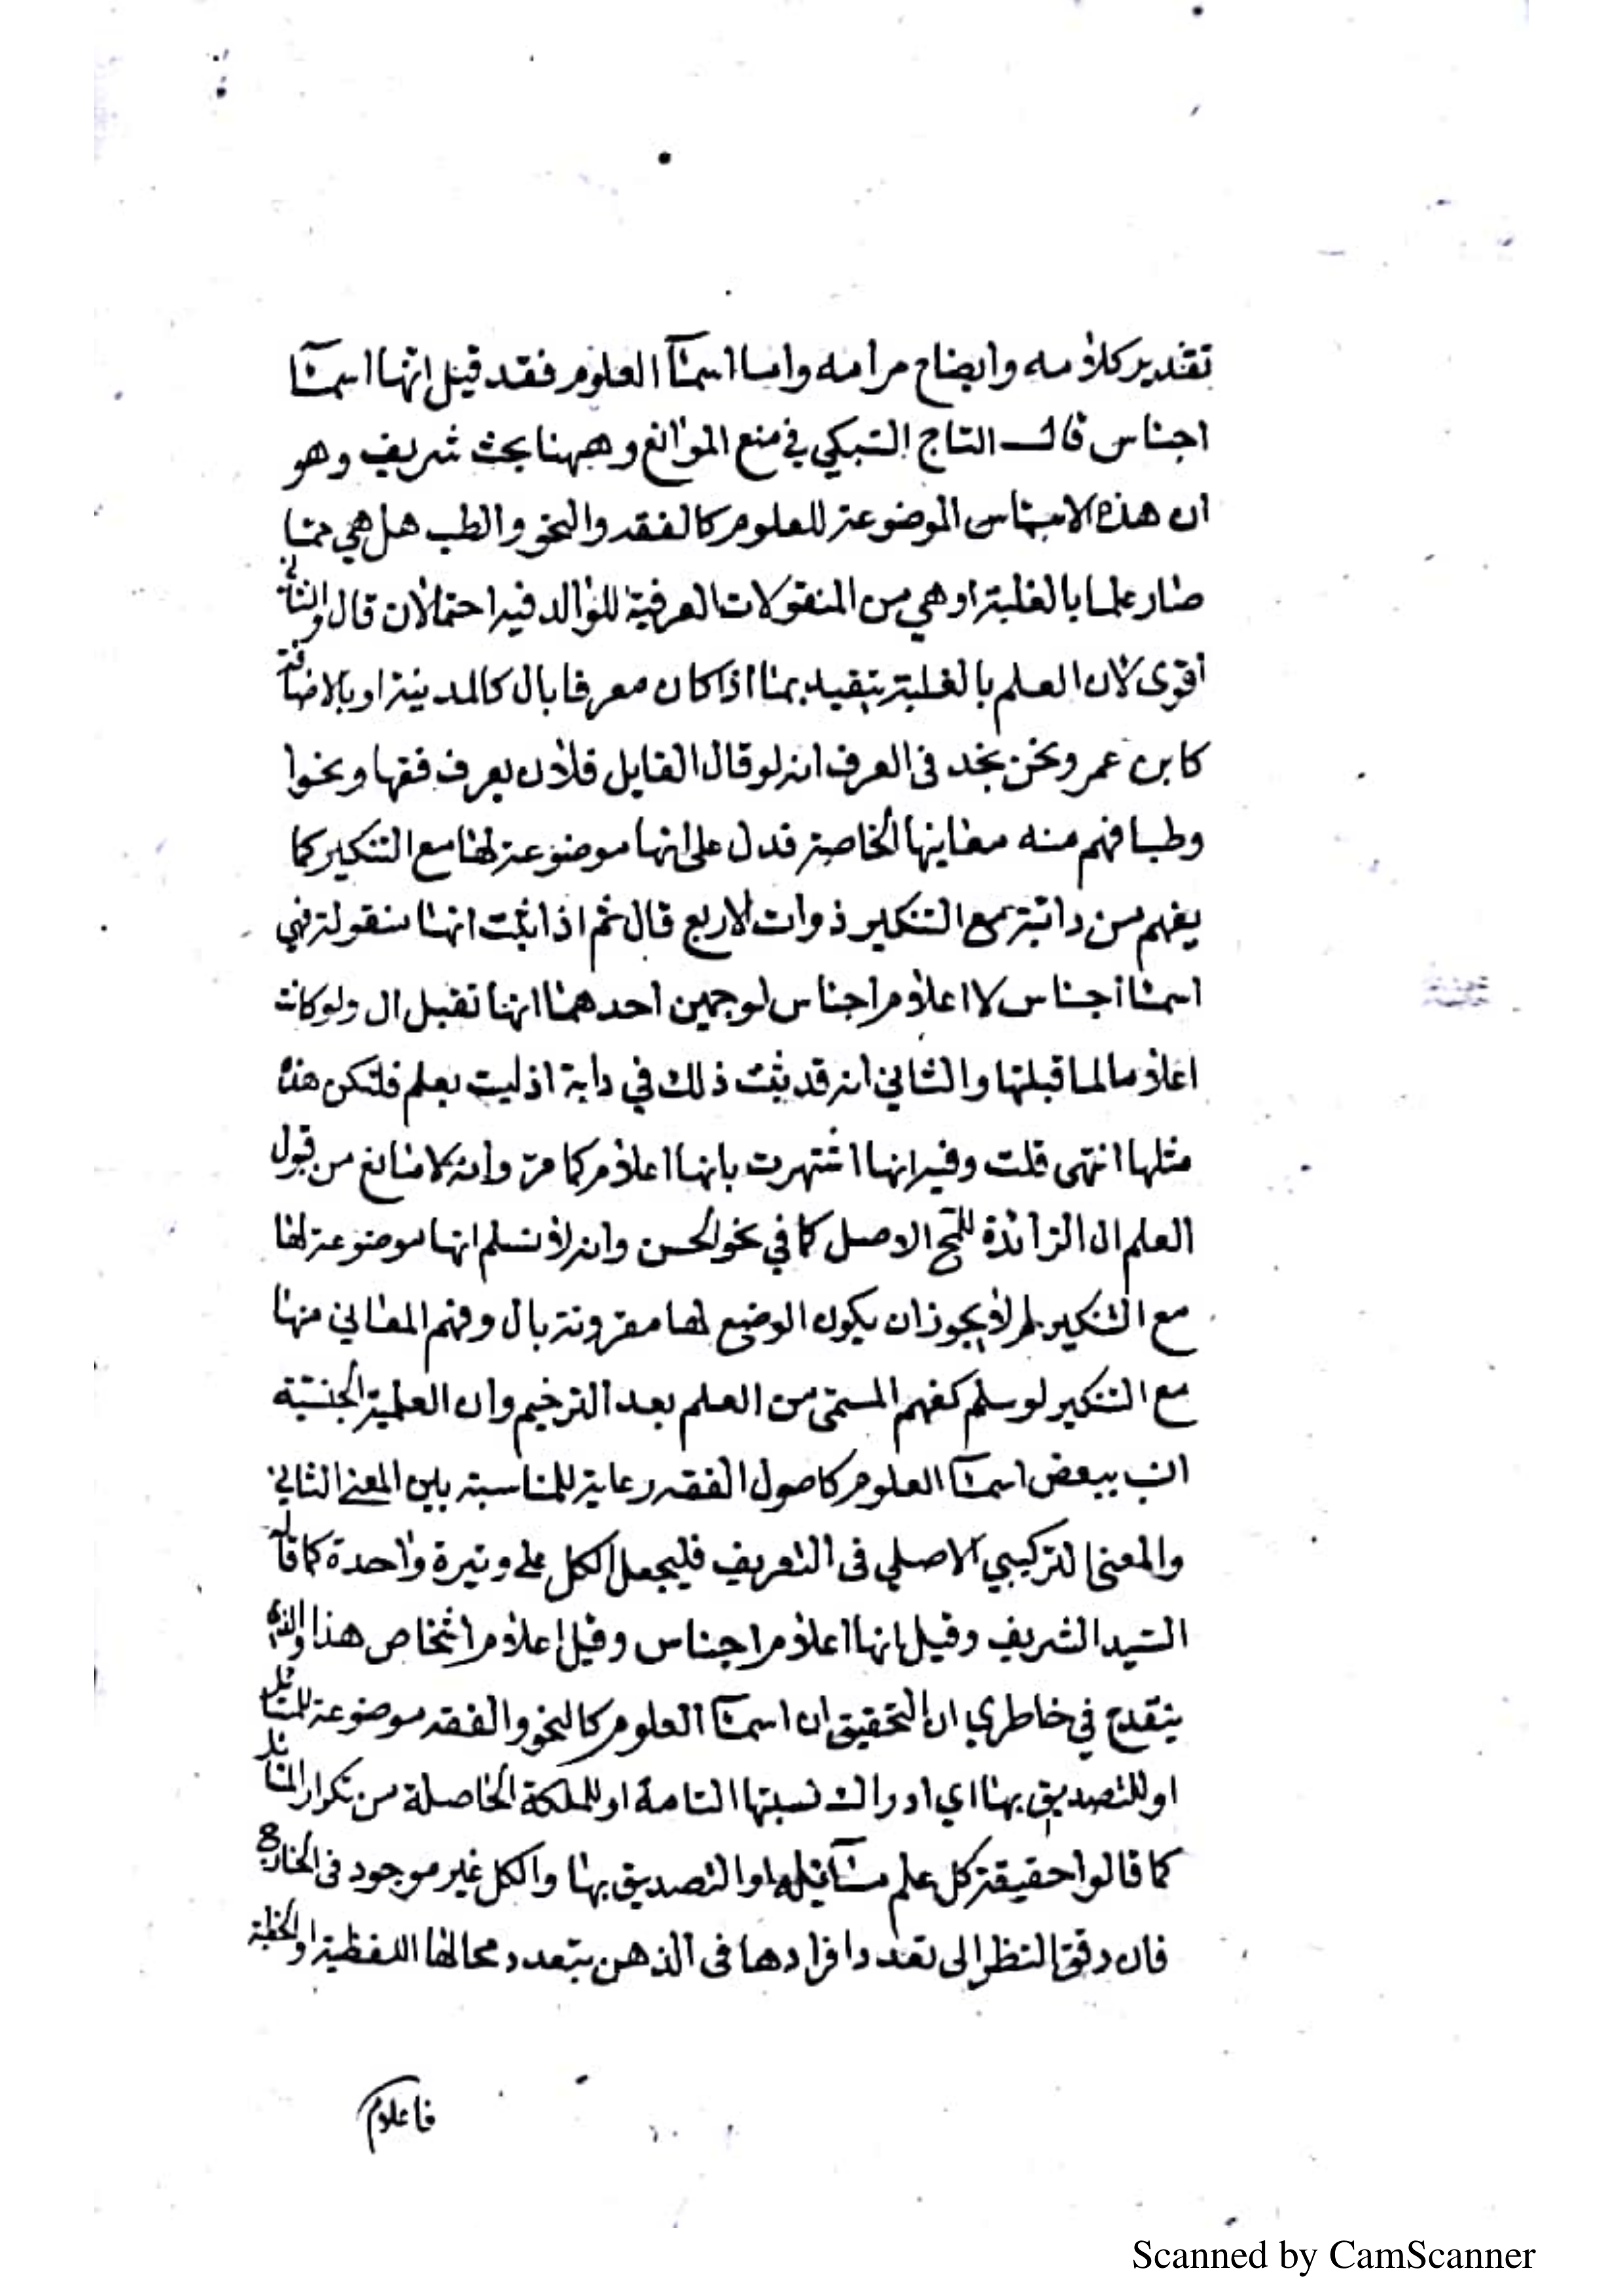 تقدير كلامه وايضاح مرامه واما اسمآ العلوم فقد قيل انها اسمآ
اجناس قال التاج السبكي في منع الموانع وههنا بحث شريف وهو
ان هذه الاجناس الموضوعة للعلوم كالفقه والنحو والطب هل هي مما
صار علما بالغلبة او هي من المنقولات العرفية للوالد فيه احتمالان قال والثاني
اقوى لان العلم بالغلبة يتقيد بما اذا كان معرفا بال كالمدينة او بالاضافة
كابن عمر ونحن نجد فى العرف انه لو قال القايل فلان يعرف فقها ونحوا
وطبا فهم منه معاينها الخاصة فدل على انها موضوعة لها مع التنكير كما
يفهم من داتبة مع التنكير ذوات الاربع قال ثم اذا ثبت انها منقولة فهي
اسما أجناس لا اعلام اجناس لوجهين احدهما انها تقبل ال ولو كانت
اعلاما لما قبلتها والثاني انه قد ثبت ذلك في دابة اذ ليت بعلم فلتكن هذه
مثلها انتهى قلت وفيه انها اشتهرت بانها اعلام كما مرّ وانه لا مانع من قبول
العلم ال الزائدة للمح الاصل كما في نحو الحسن وانه لا نسلم انها موضوعة لها
مع التنكير بل لم لا يجوز ان يكون الوضع لها مقرونة بال وفهم المعاني منها
مع التنكير لو سلم كفهم المسمى من العلم بعد الترخيم وان العلمية الجنسية
انسب ببعض اسمآ العلوم كاصول الفقه رعاية للمناسبة بين المعنى الثاني
والمعنى التركيبي الاصلي فى التعريف فليجعل الكل على وتيرة واحدة كما قاله
السيد الشريف وقيل انها اعلام اجناس وقيل اعلام اشخاص هذا والذي
ينقدح في خاطري ان التحقيق ان اسمآ العلوم كالنحو والفقه موضوعة للمسائل
او للتصديق بها اي ادراك نسبتها التامة او للملكة الحاصلة من تكرار المسائل
كما قالوا حقيقة كل علم مسآئله او التصديق بها والكل غير موجود فى الخارج
فان دقق النظر الى تعدد افرادها فى الذهن بتعدد محالها اللفظية او الخطية
فاعلام
Scanned by CamScanner